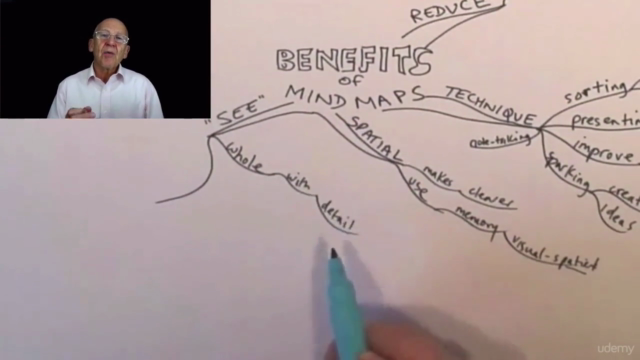 REDUCE
BENEFITS
OF
MIND MAPS
"SEE"
whole with detail
SPATIAL
makes clearer
use memory visual-spatial
TECHNIQUE
note-taking
sorting
presentin
improve
sparking
creat
Ideas
udemy